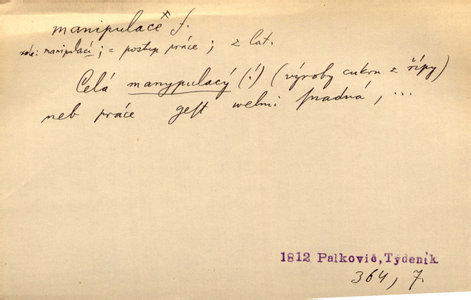 manipulace × f.
manipulací ; = postup práce ; z lat.
Celá manypulacý (!) (výroby cukru z řípy)
neb práce gest welmi snadná, ...
1812 Palkovič, Týdeník
364, 7.